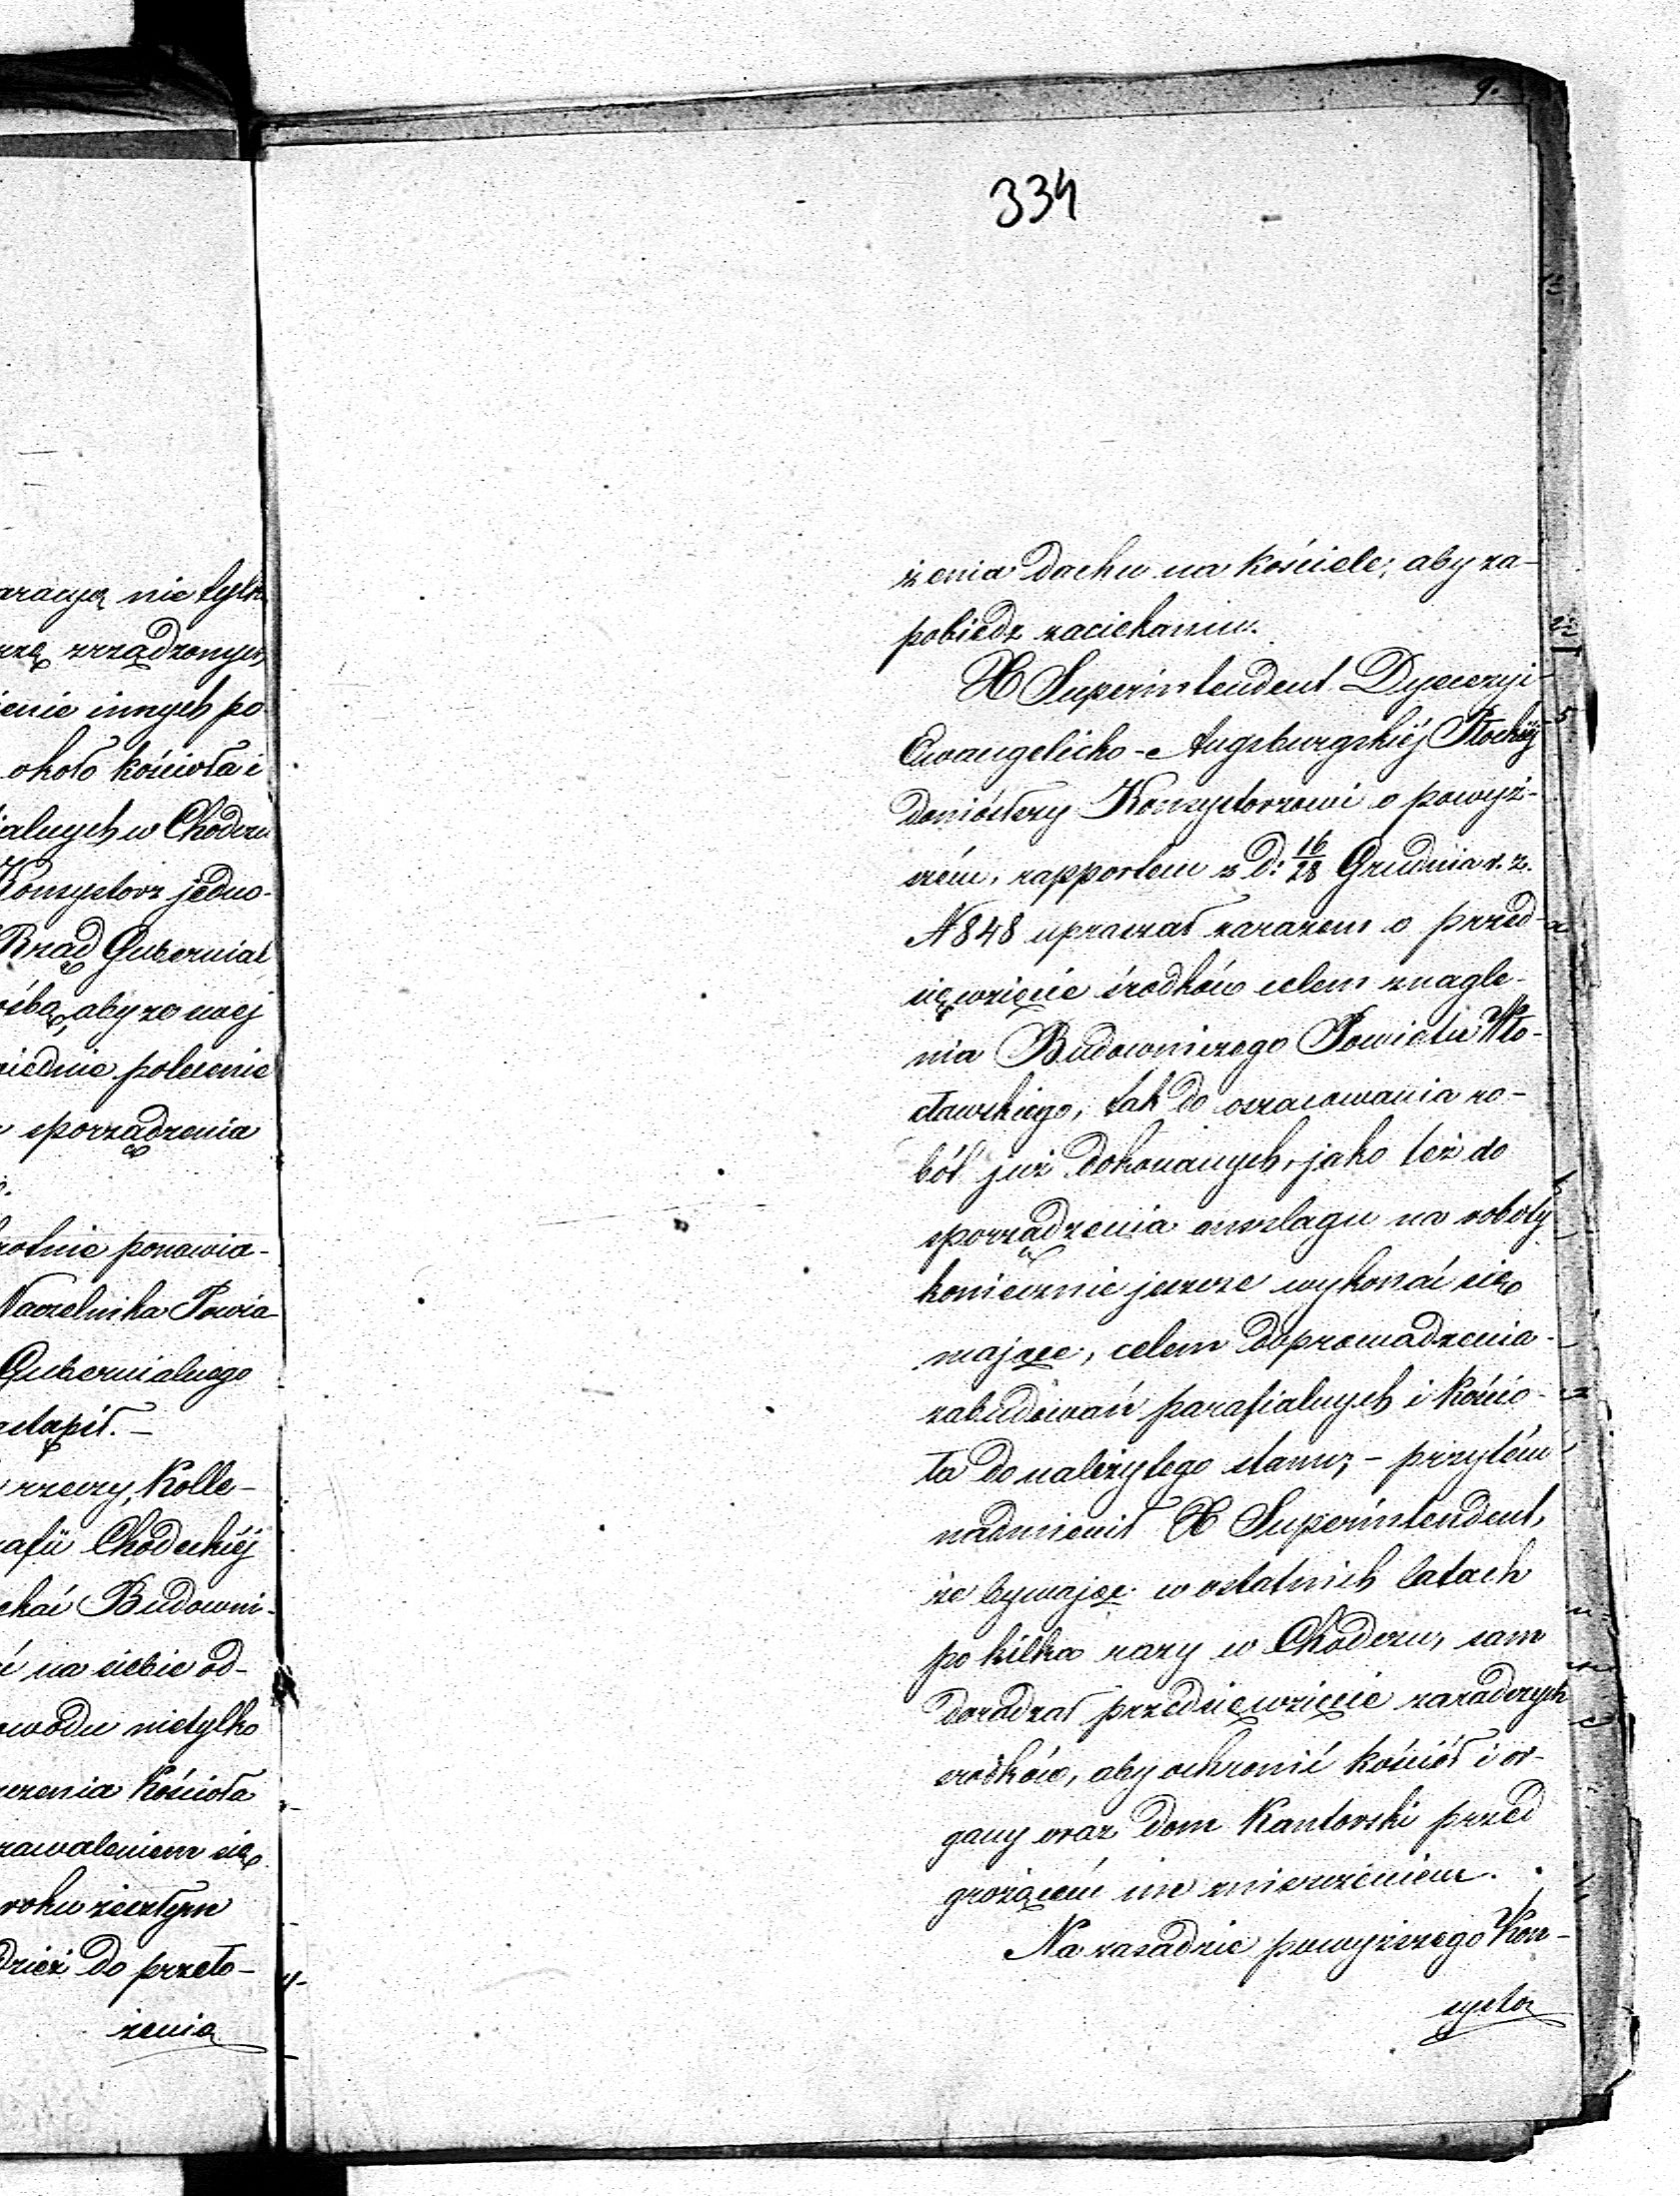 9.
334
aracyą nie tylk
rzą zrządzonych
ienie innych po
około kościoła i
ialnych w Chodczu
Konsystorz jedno-
Rząd Gubernial
ośbą, aby ze swej
wiednie polecenie
sporządzenia
rotnie ponawia-
Naczelnika Powia-
Gubernialnego
astąpił. –
rzeczy, Kolle-
rafii Chodeckiéj
chać Budowni-
ć na siebie od-
wodu nietylko
czenia Kościoła
zawaleniem się
roku zeszłym
dzież do przeło-
żenia
żenia dachu na kościele, aby za-
pobiedz zaciekaniu.
X Superintendent Dyecezyi
Ewangelicko-Augsburgskiéj Płockiéj
doniósłszy Konsystorzowi o powyż-
szém, rapportem z d: 16/28 Grudnia r. z.
N 848 upraszał zarazem o przed-
sięwzięcie środków celem znagle-
nia Budowniczego Powiatu Wło-
cławskiego, tak do oszacowania ro-
bót już dokonanych, jako też do
sporządzenia anszlagu na roboty
koniecznie jeszcze wykonać się
mające, celem doprowadzenia
zabudowań parafialnych i kościo-
ła do należytego stanu, – przytém
nadmienił X Superintendent,
że bywając w ostatnich latach
po kilka razy w Chodczu, sam
doradzał przedsięwzięcie zaradczych
srodków, aby ochronić kościół i or-
gany oraz dom Kantorski przed
grożącém im zniszczeniem.
Na zasadzie powyższego Kon-
systorz